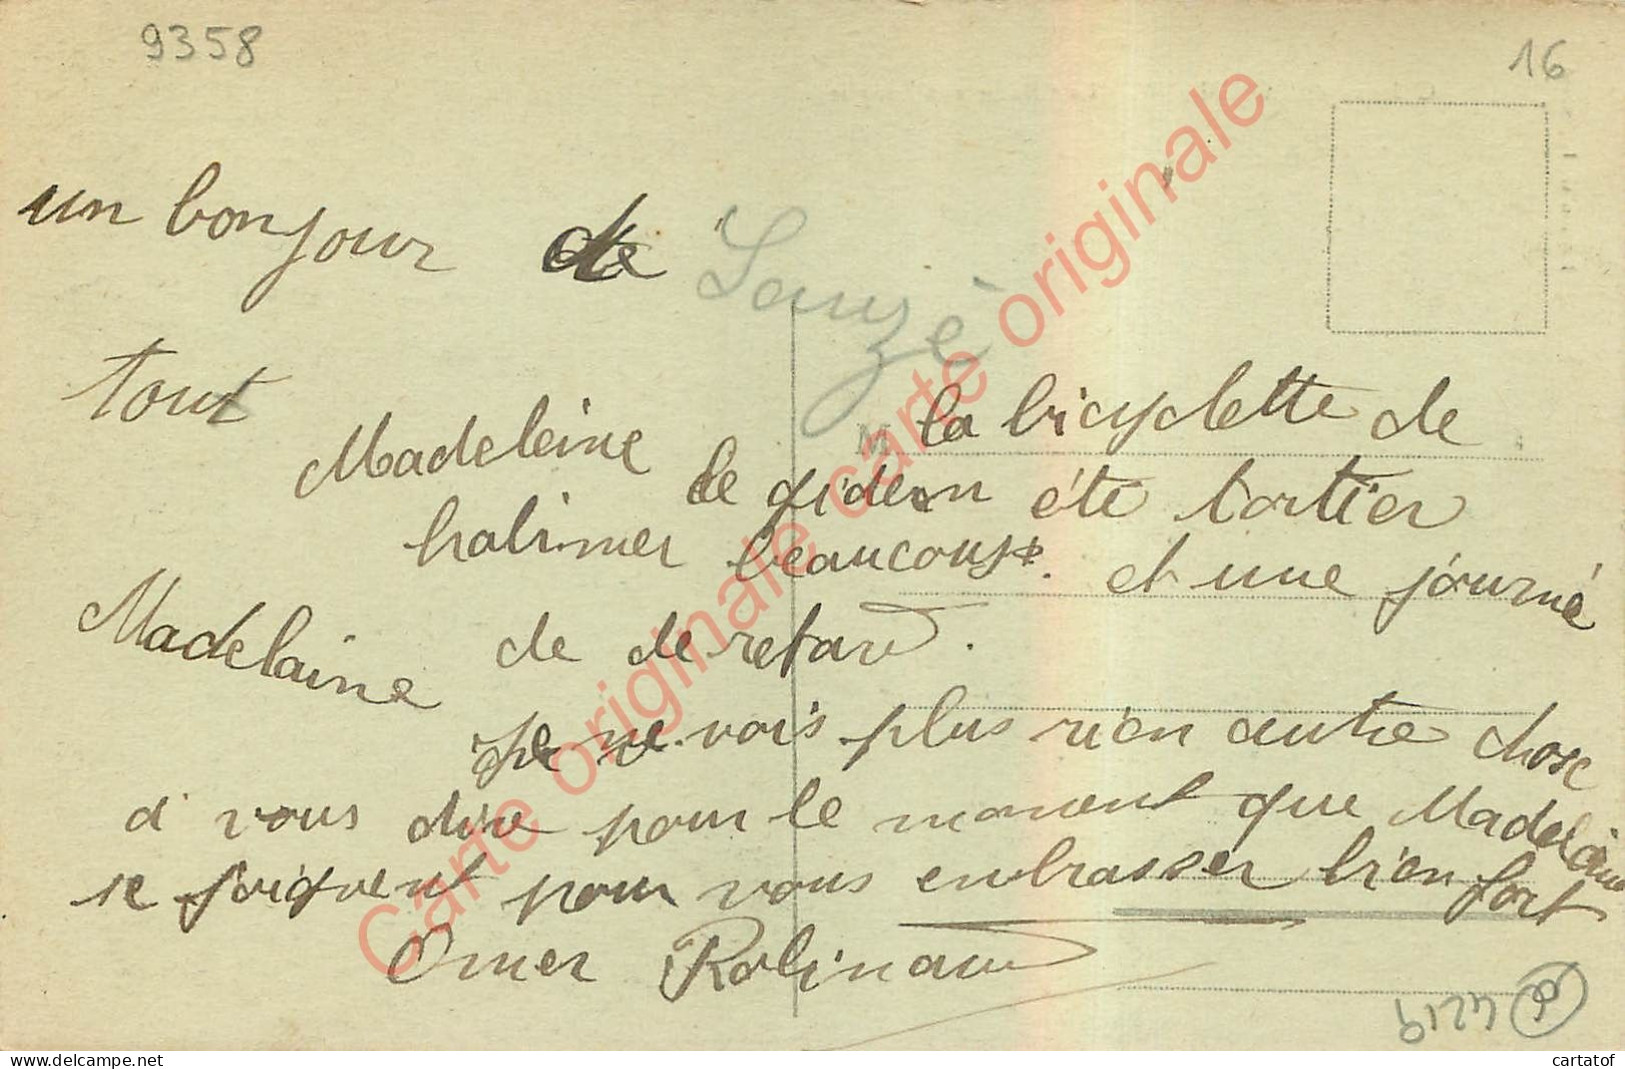 9358
16
un bonjour de Sauzé
tout
Madeleine la bicyclette de
M
le gideon été tortier
halimer beaucoup. et une journé
Madelaine de de retard.
Je ne vois plus rien autre chose
a vous dire pour le moment que Madeleine
se joignent pour vous embrasser bien fort
Omer Rolinaud
6124
Carte originale carte originale
cartatof